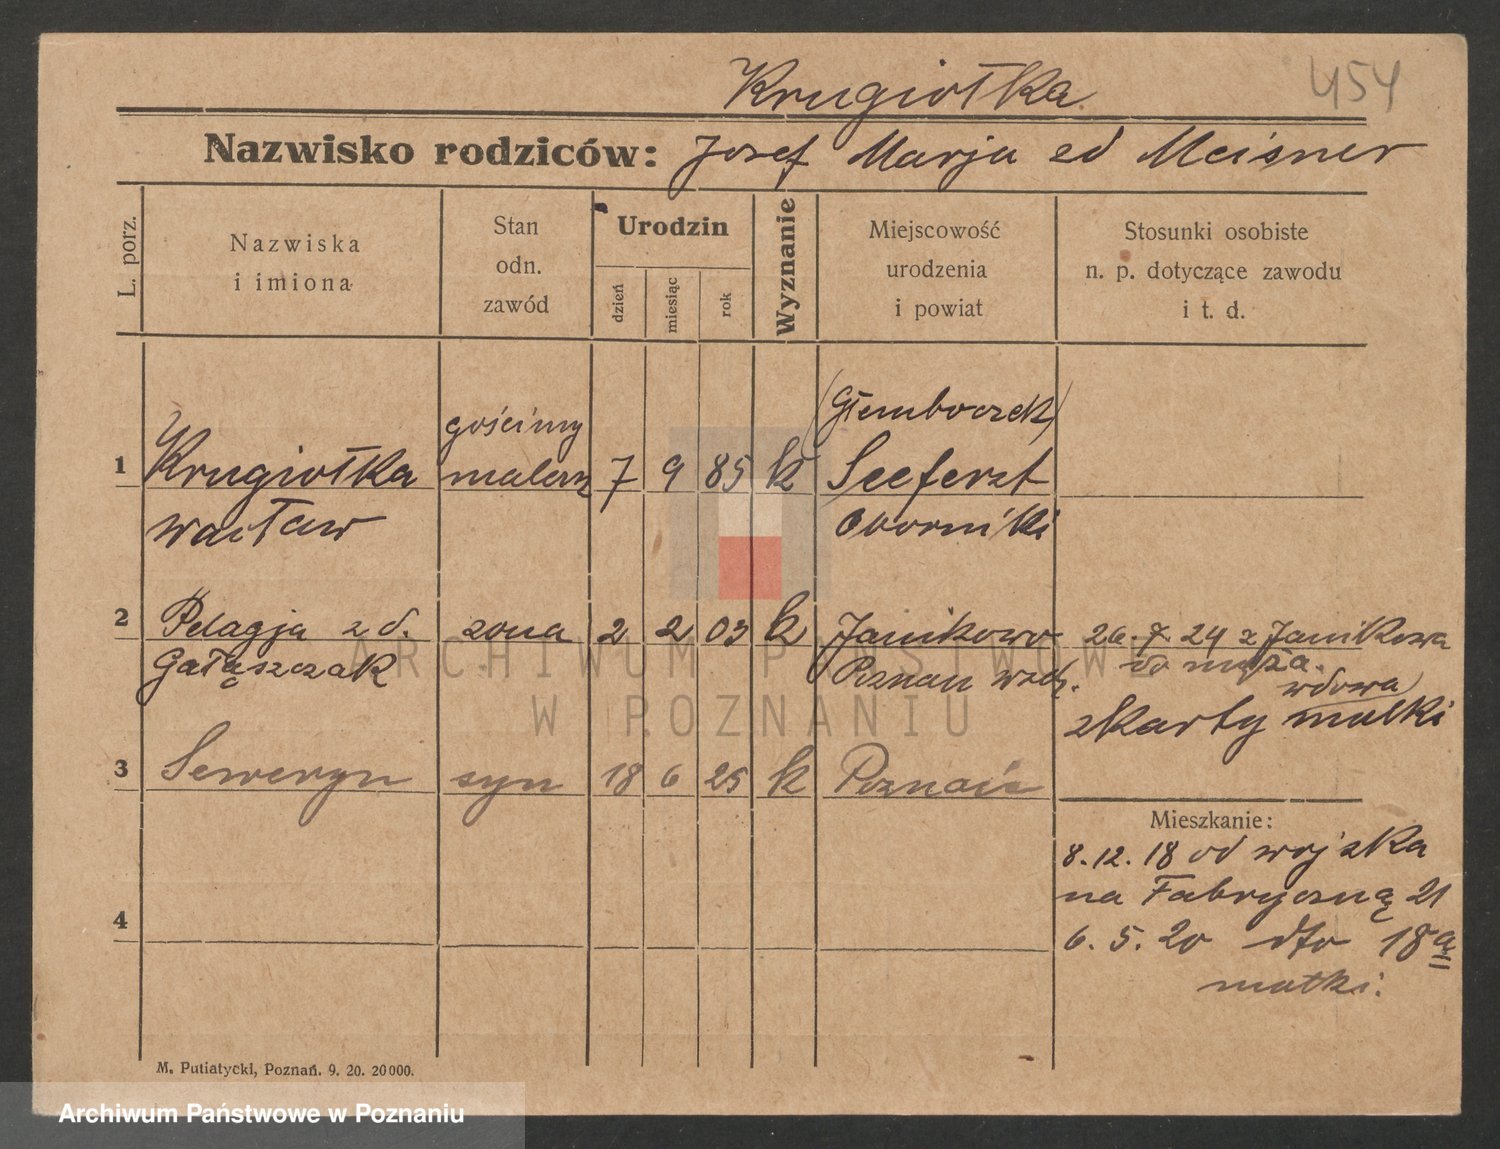 Krugiołka
454
Nazwisko rodziców: Josef Marja zd Meisner
L. porz.
Nazwiska
i imiona
Stan
odn.
zawód
Urodzin
dzień
miesiąc
rok
Wyznanie
Miejscowość
urodzenia
i powiat
Stosunki osobiste
n. p. dotyczące zawodu
i t. d.
gościnny
(Głemboczek)
1 Krugiołka malarz 7 9 85 k Seeferzt
Wacław Oborniki
2 Pelagja z d. zona 2 2 03 k Janikowo 26. 7. 24 z Janikowa
Gałąszczak Poznań wsch. do męża.
wdowa
z karty matki
3 Seweryn syn 18 6 25 k Poznań
Mieszkanie:
8.12.18 od wojska
na Fabryczną 21
4
6. 5. 20 dto 18a
matki.
M. Putiatycki, Poznań. 9. 20. 20000.
ARCHIWUM PAŃSTWOWE
W POZNANIU
Archiwum Państwowe w Poznaniu